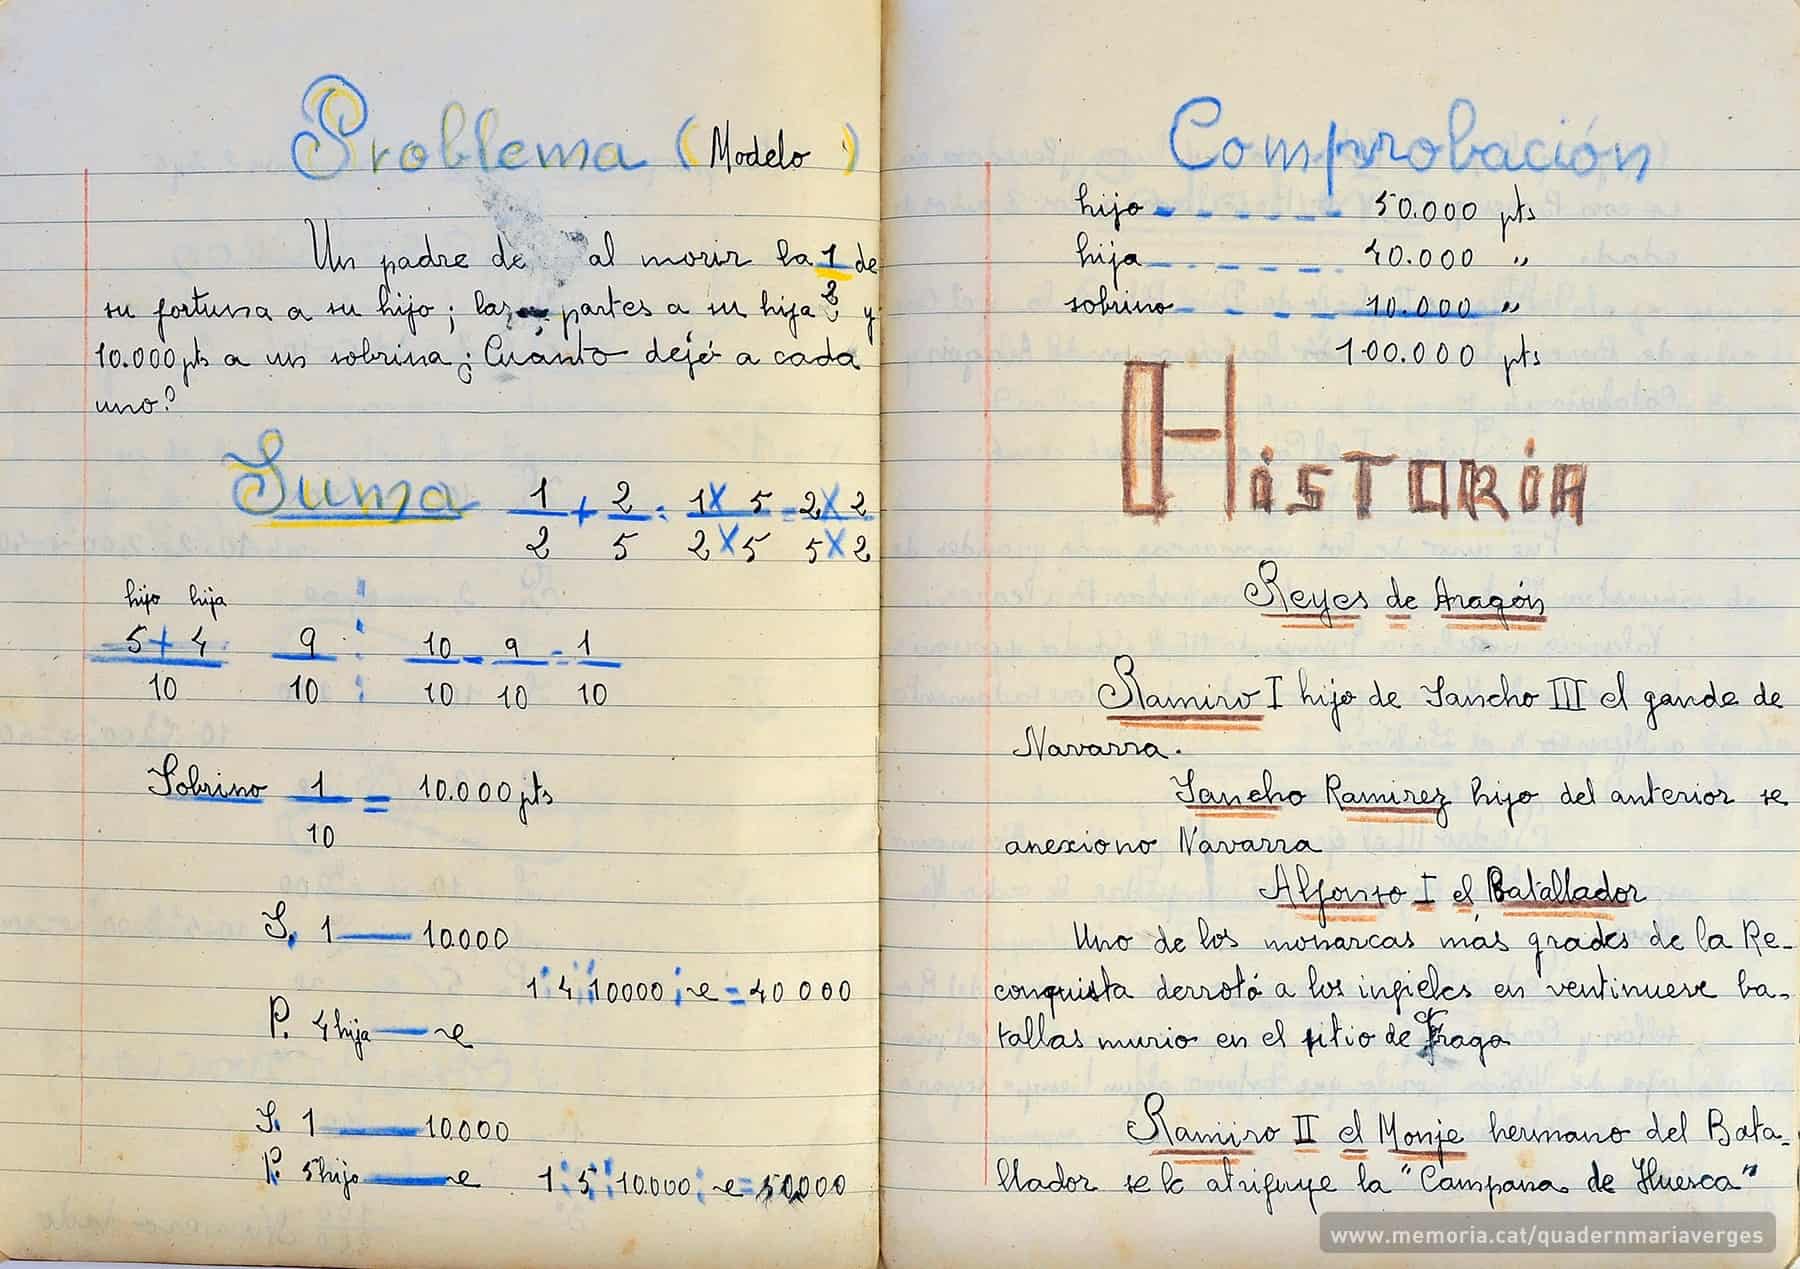 Problema (Modelo)
Un padre de al morir la 1 de
su fortuna a su hijo; las partes a su hija 2 y
10.000 pts a un sobrina ¿Cuánto dejó a cada
uno?
Suma 1 + 2 : 1 X 5 = 2 X 2
2 5 2 X 5 5 X 2
hijo hija
5 + 4 9 : 10 - 9 = 1
10 10 : 10 10 10
Sobrino 1 = 10.000 pts
10
S. 1 — 10.000
1 : 4 :: 10000 : x = 40 000
P. 4 hija — x
S. 1 — 10.000
P. 5 hijo — x 1 : 5 :: 10.000 : x = 50000
Comprobación
hijo - - - - - 50.000 pts
hija - - - - - 40.000 "
sobrino - - - - 10.000 "
100.000 pts
HiSTORiA
Reyes de Aragón
Ramiro I hijo de Sancho III el gande de
Navarra.
Sancho Ramirez hijo del anterior se
anexiono Navarra
Alfonso I el Batallador
Uno de los monarcas más grades de la Re-
conquista derrotó a los ingieles en ventinueve ba-
tallas murio en el sitio de Fraga
Ramiro II el Monje hermano del Bata-
llador se le atriguye la "Campana de Huesca"
www.memoria.cat/quadernmariaverges